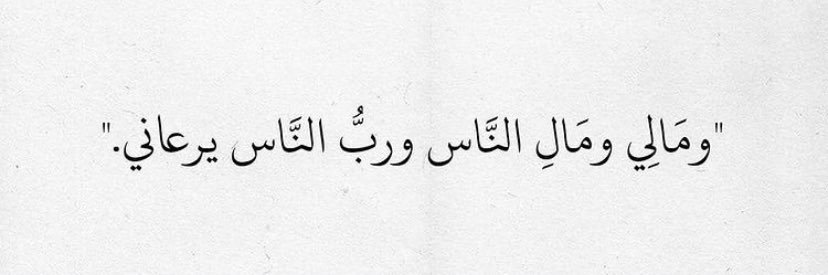 "ومَالِي ومَالِ النَّاس وربُّ النَّاس يرعاني."